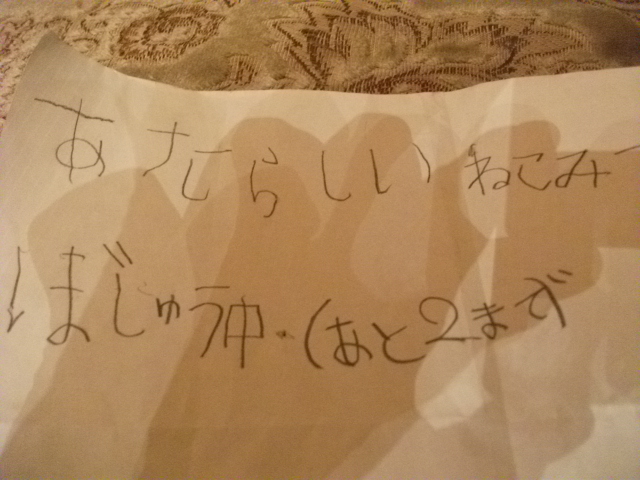 あたらしいねこみ
ほじゅう中.(あと2まで